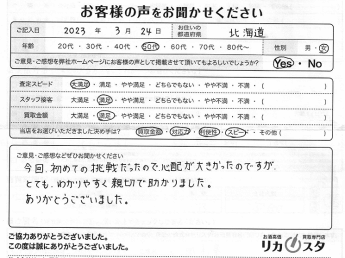 お客様の声をお聞かせください
ご記入日 2023年 3月 24日 お住いの都道府県 北海道
年齢 20代・30代・40代・50代・60代・70代・80代〜 性別 男・女
ご意見・ご感想を弊社ホームページにお客様の声として掲載させて頂いてもよろしいでしょうか? Yes・No
査定スピード 大満足・満足・やや満足・どちらでもない・やや不満・不満・( )
スタッフ接客 大満足・満足・やや満足・どちらでもない・やや不満・不満・( )
買取金額 大満足・満足・やや満足・どちらでもない・やや不満・不満・( )
当店をお選びいただきました決め手は? 買取金額・対応力・利便性・スピード・その他( )
ご意見・ご感想などぜひお聞かせください
今回、初めての挑戦だったので、心配が大きかったのですが、
とても、わかりやすく親切で助かりました。
ありがとうございました。
ご協力ありがとうございました。
この度は誠にありがとうございました。
お酒高価買取専門店
リカスタ